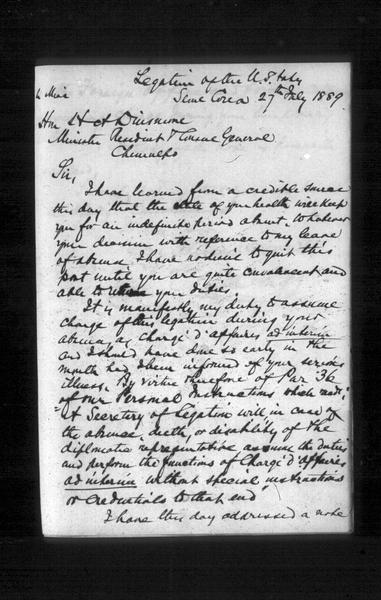 Legation of the U.S. 
Seoul Corea 27th July 1889.
Hon H A Dinsmore
Minister Resident & Consul General
Chemulpo
Sir,
I have learned from a credible source
this day that the state of your health will keep
you for an indefinite period absent. Whatever
your decision with reference to my leave
of absence I have no desire to quit this
post until you are quite convalescent and
able to your duties.
It is manifestly my duty to assume
charge of this legation during your
absence, as Chargé d'affaires ad interim
and I should have done so early in the
month had I been informed of your serious
illness. By virtue therefore of Par 36
of our Personal Instructions which reads:
"A Secretary of Legation will in case of
the absence, death, or disability of the
diplomatic representative assume the duties
and perform the functions of Chargé d'affaires
ad interim without special instructions
or credentials to that end
I have this day addressed a note